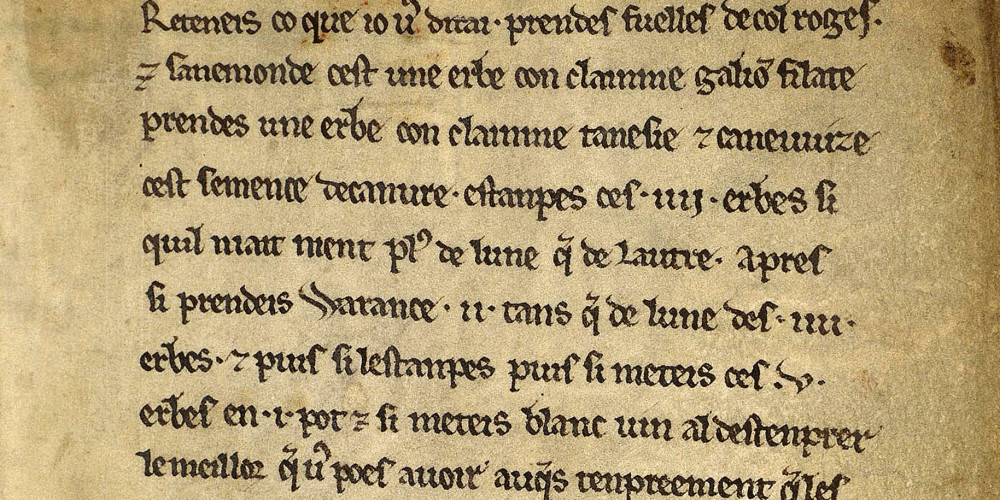 Reteneis co que io uˢ dirai· prendes fuelles de col roges·
⁊ sanemonde cest une erbe con claimme galiofilate
prendes une erbe con claimme tanesie ⁊ caneuuize
cest semence decanure· estanpes ces· iiij · erbes si
quil niait nient plꝰ de lune q̃ de lautre· Apres
si prendeis Warance · ii· tans q̃ de lune des· iiii·
erbes· ⁊ puis si lestanpes puis si meteis ces .v.
erbes en· i· pot ⁊ si meteis blanc uin al destenprer
le meillor q̃ uˢ poes auoir auq̃s tenpreement q̃ les